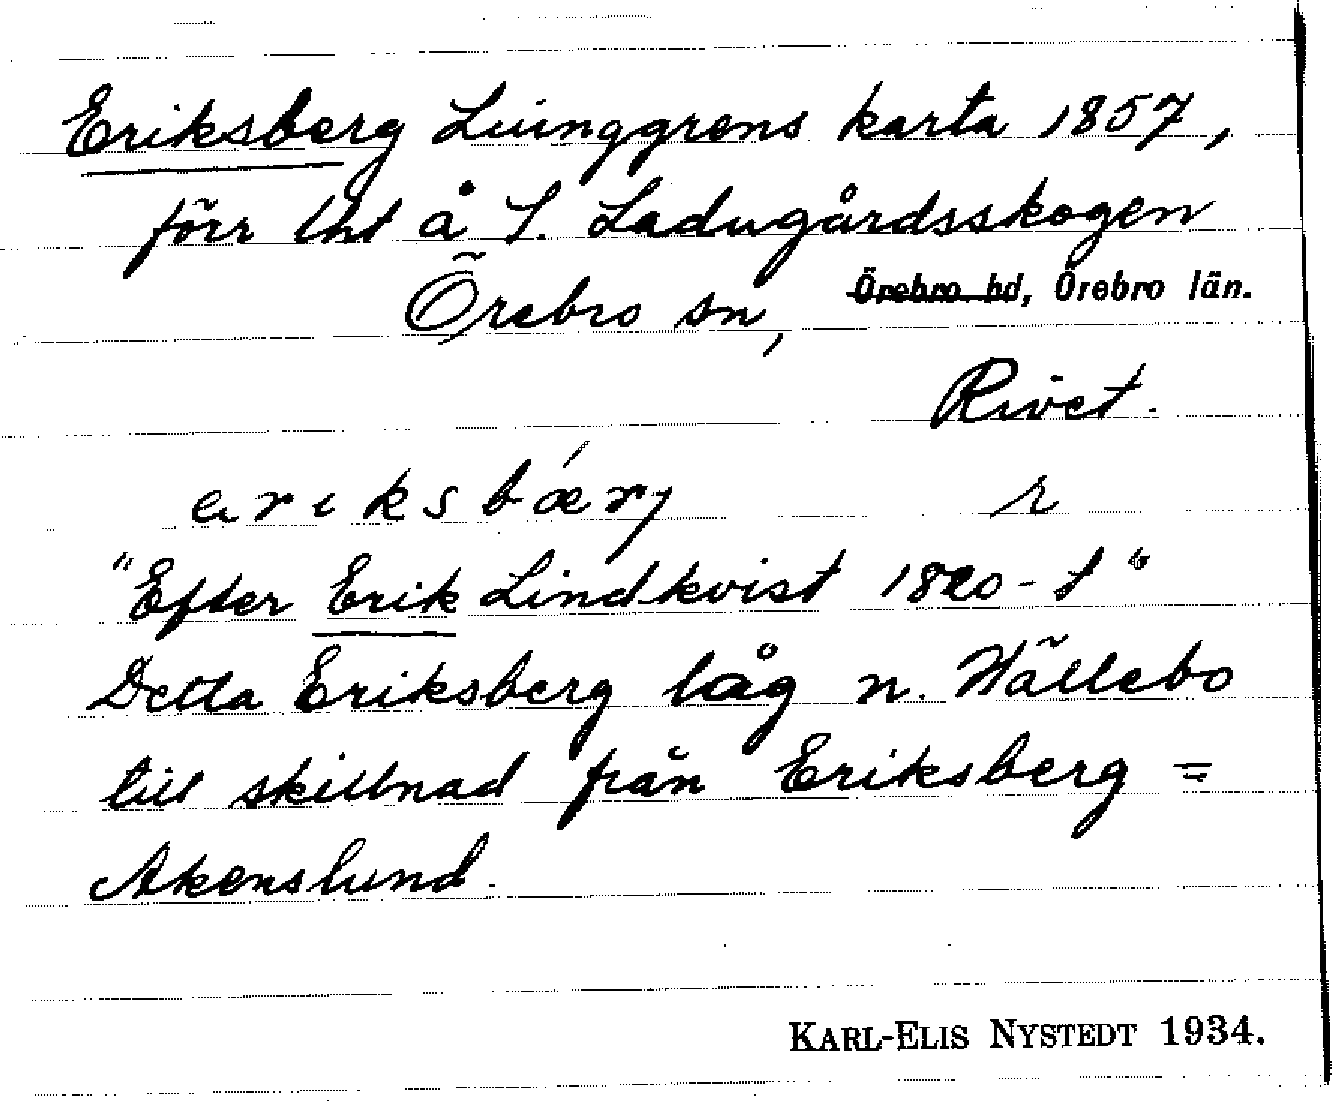 Eriksberg Luinggrens karta 1857,
förr lht å S. Ladugårdsskogen
Örebro sn, Örebro hd, Örebro län.
Rivet.
eriksbǽrj r
"Efter Erik Lindkvist 1820-t"
Detta Eriksberg låg n. Hällebo
till skillnad från Eriksberg =
Akenslund.
KARL-ELIS NYSTEDT 1934.